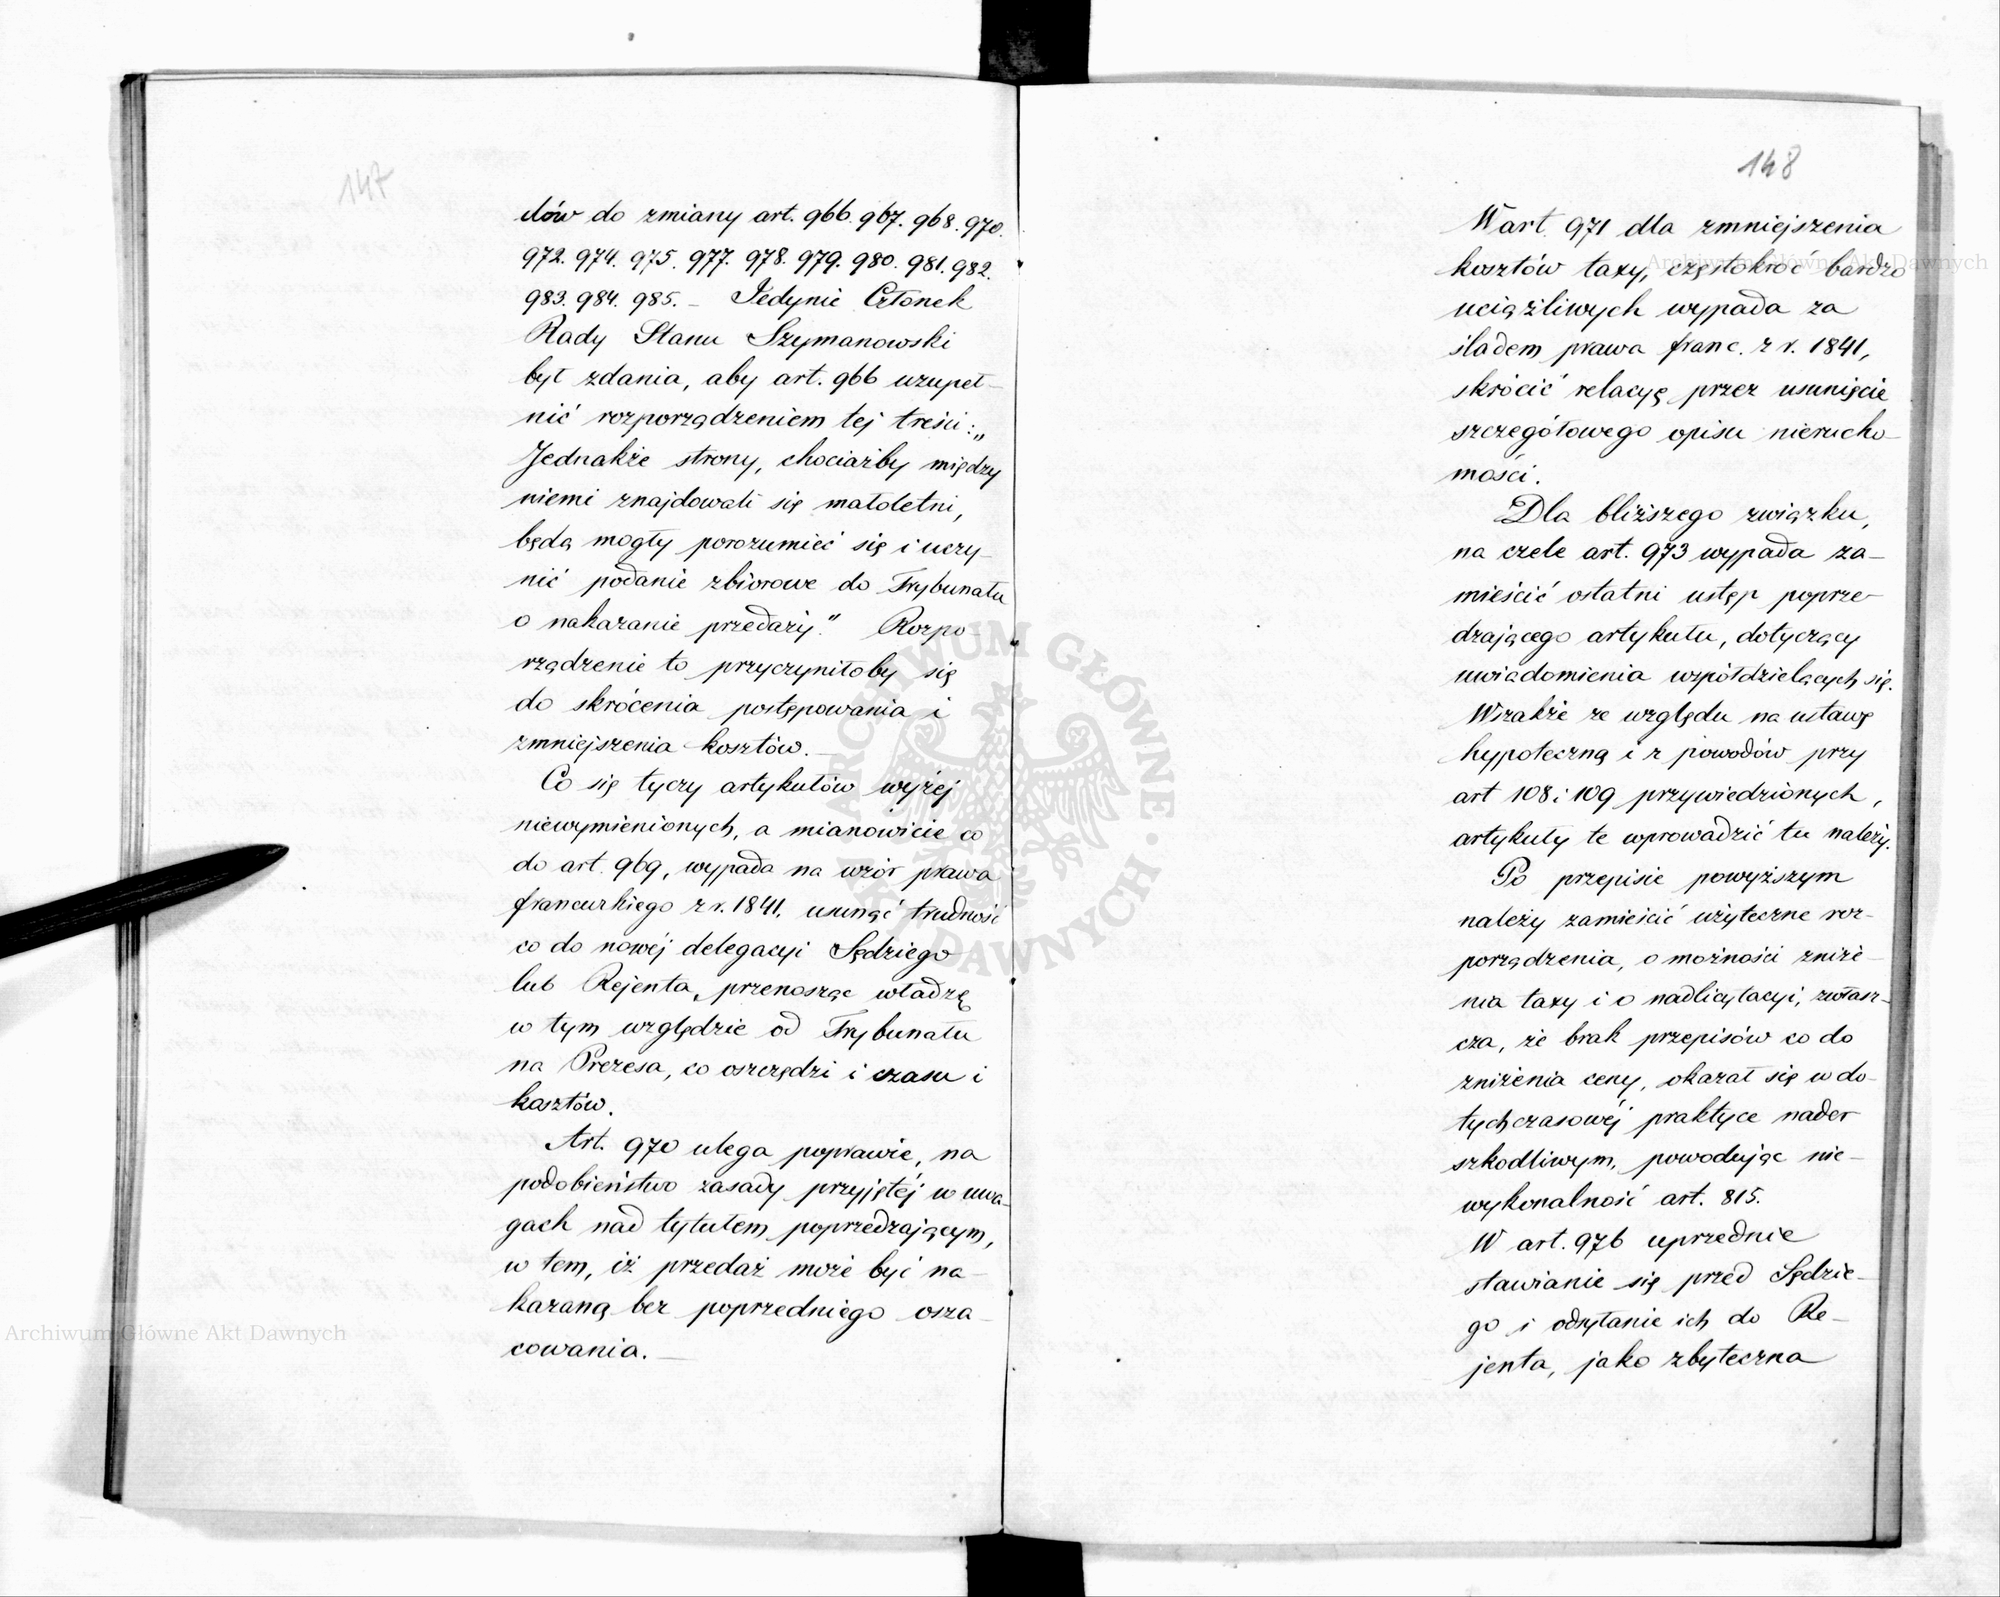 147
dów do zmiany art. 966. 967. 968. 970.
972. 974. 975. 977. 978. 979. 980. 981. 982.
983. 984. 985. – Jedynie Członek
Rady Stanu Szymanowski
był zdania, aby art. 966 uzupeł-
nić rozporządzeniem tej treści: „
Jednakże strony, chociażby między
niemi znajdowali się małoletni,
będą mogły porozumieć się i uczy-
nić podanie zbiorowe do Trybunału
o nakazanie przedaży." Rozpo-
rządzenie to przyczyniłoby się
do skrócenia postępowania i
zmniejszenia kosztów. –
Co się tyczy artykułów wyżej
niewymienionych, a mianowicie co
do art. 969, wypada na wzór prawa
francuzkiego z r. 1841. usunąć trudność
co do nowéj delegacyi Sędziego
lub Rejenta, przenosząc władzę
w tym względzie od Trybunału
na Prezesa, co oszczędzi i czasu i
kosztów.
Art. 970 ulega poprawie, na
podobieństwo zasady przyjętéj w uwa-
gach nad tytułem poprzedzającym,
w tem, iż przedaż może być na-
kazaną bez poprzedniego osza-
cowania. –
148
W art. 971 dla zmniejszenia
kosztów taxy, częstokroć bardzo
uciążliwych wypada za
śladem prawa franc. z r. 1841,
skrócić relacyę przez usunięcie
szczegółowego opisu nierucho-
mości.
Dla bliższego związku,
na czele art. 973 wypada za-
mieścić ostatni ustęp poprze-
dzającego artykułu, dotyczący
uwiadomienia współdzielących się.
Wszakże ze względu na ustawę
hypoteczną i z powodów przy
art 108 i 109 przywiedzionych,
artykuły te wprowadzić tu należy.
Po przepisie powyższym
należy zamieścić użyteczne roz-
porządzenia, o możności zniże-
nia taxy i o nadlicytacyi, zwłasz-
cza, że brak przepisów co do
zniżenia ceny, okazał się w do-
tychczasowéj praktyce nader
szkodliwym, powodując nie-
wykonalność art. 815.
W art. 976 uprzednie
stawianie się przed Sędzie-
go i odsyłanie ich do Re-
jenta, jako zbyteczna
ARCHIWUM GŁÓWNE AKT DAWNYCH
Archiwum Główne Akt Dawnych
Archiwum Główne Akt Dawnych